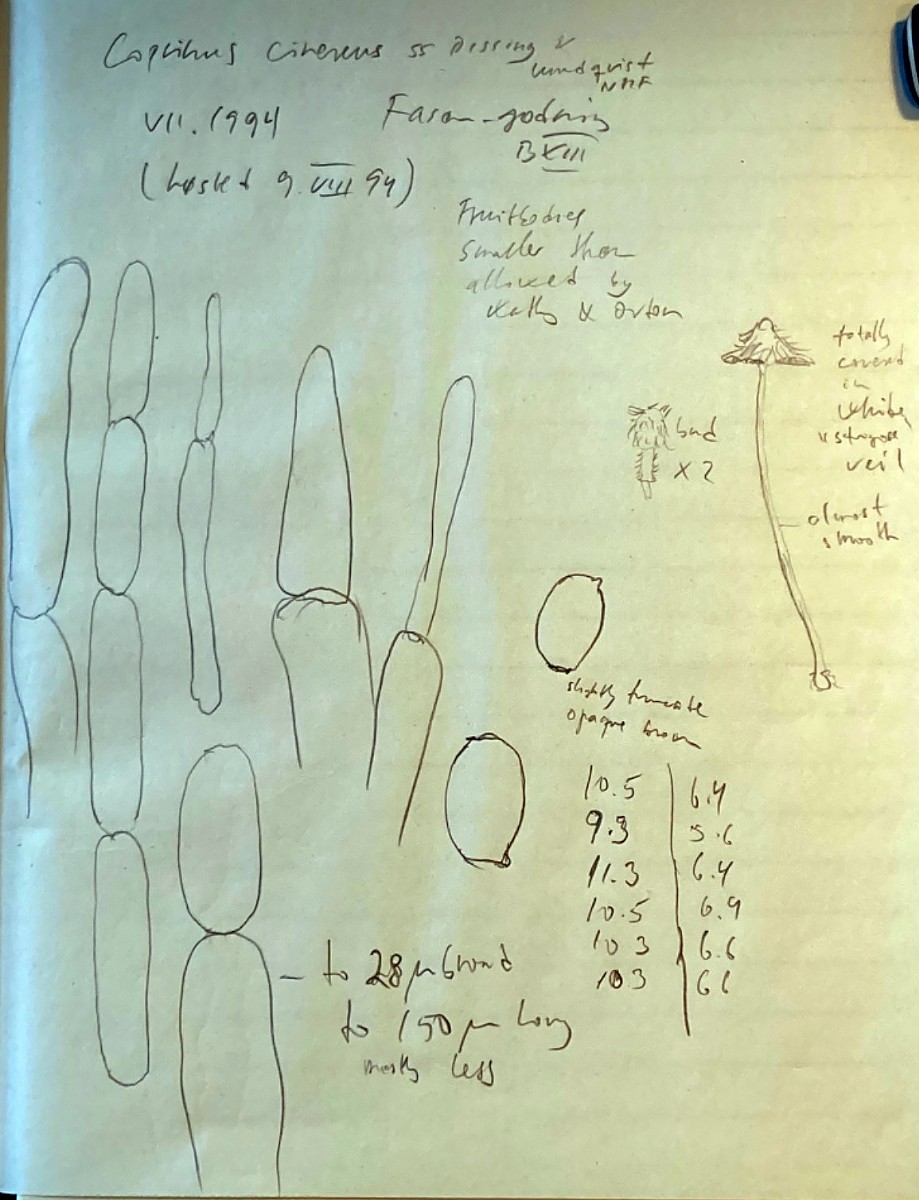 Coprinus cinereus ss Dissing &
Lundquist
VII. 1994
(høsted 9. VIII 94)
BXIII
Fruitbodies
smaller than
allowed by
& Orton
totally
covered
in
white
veil
bud
x 2
almost
smooth
slightly truncate
opaque brown
10.5 | 6.4
9.3 | 5.6
11.3 | 6.4
10.5 | 6.9
10 3 | 6.6
103 | 6 6
— to 28 µ broad
to 150 µ long
mostly less